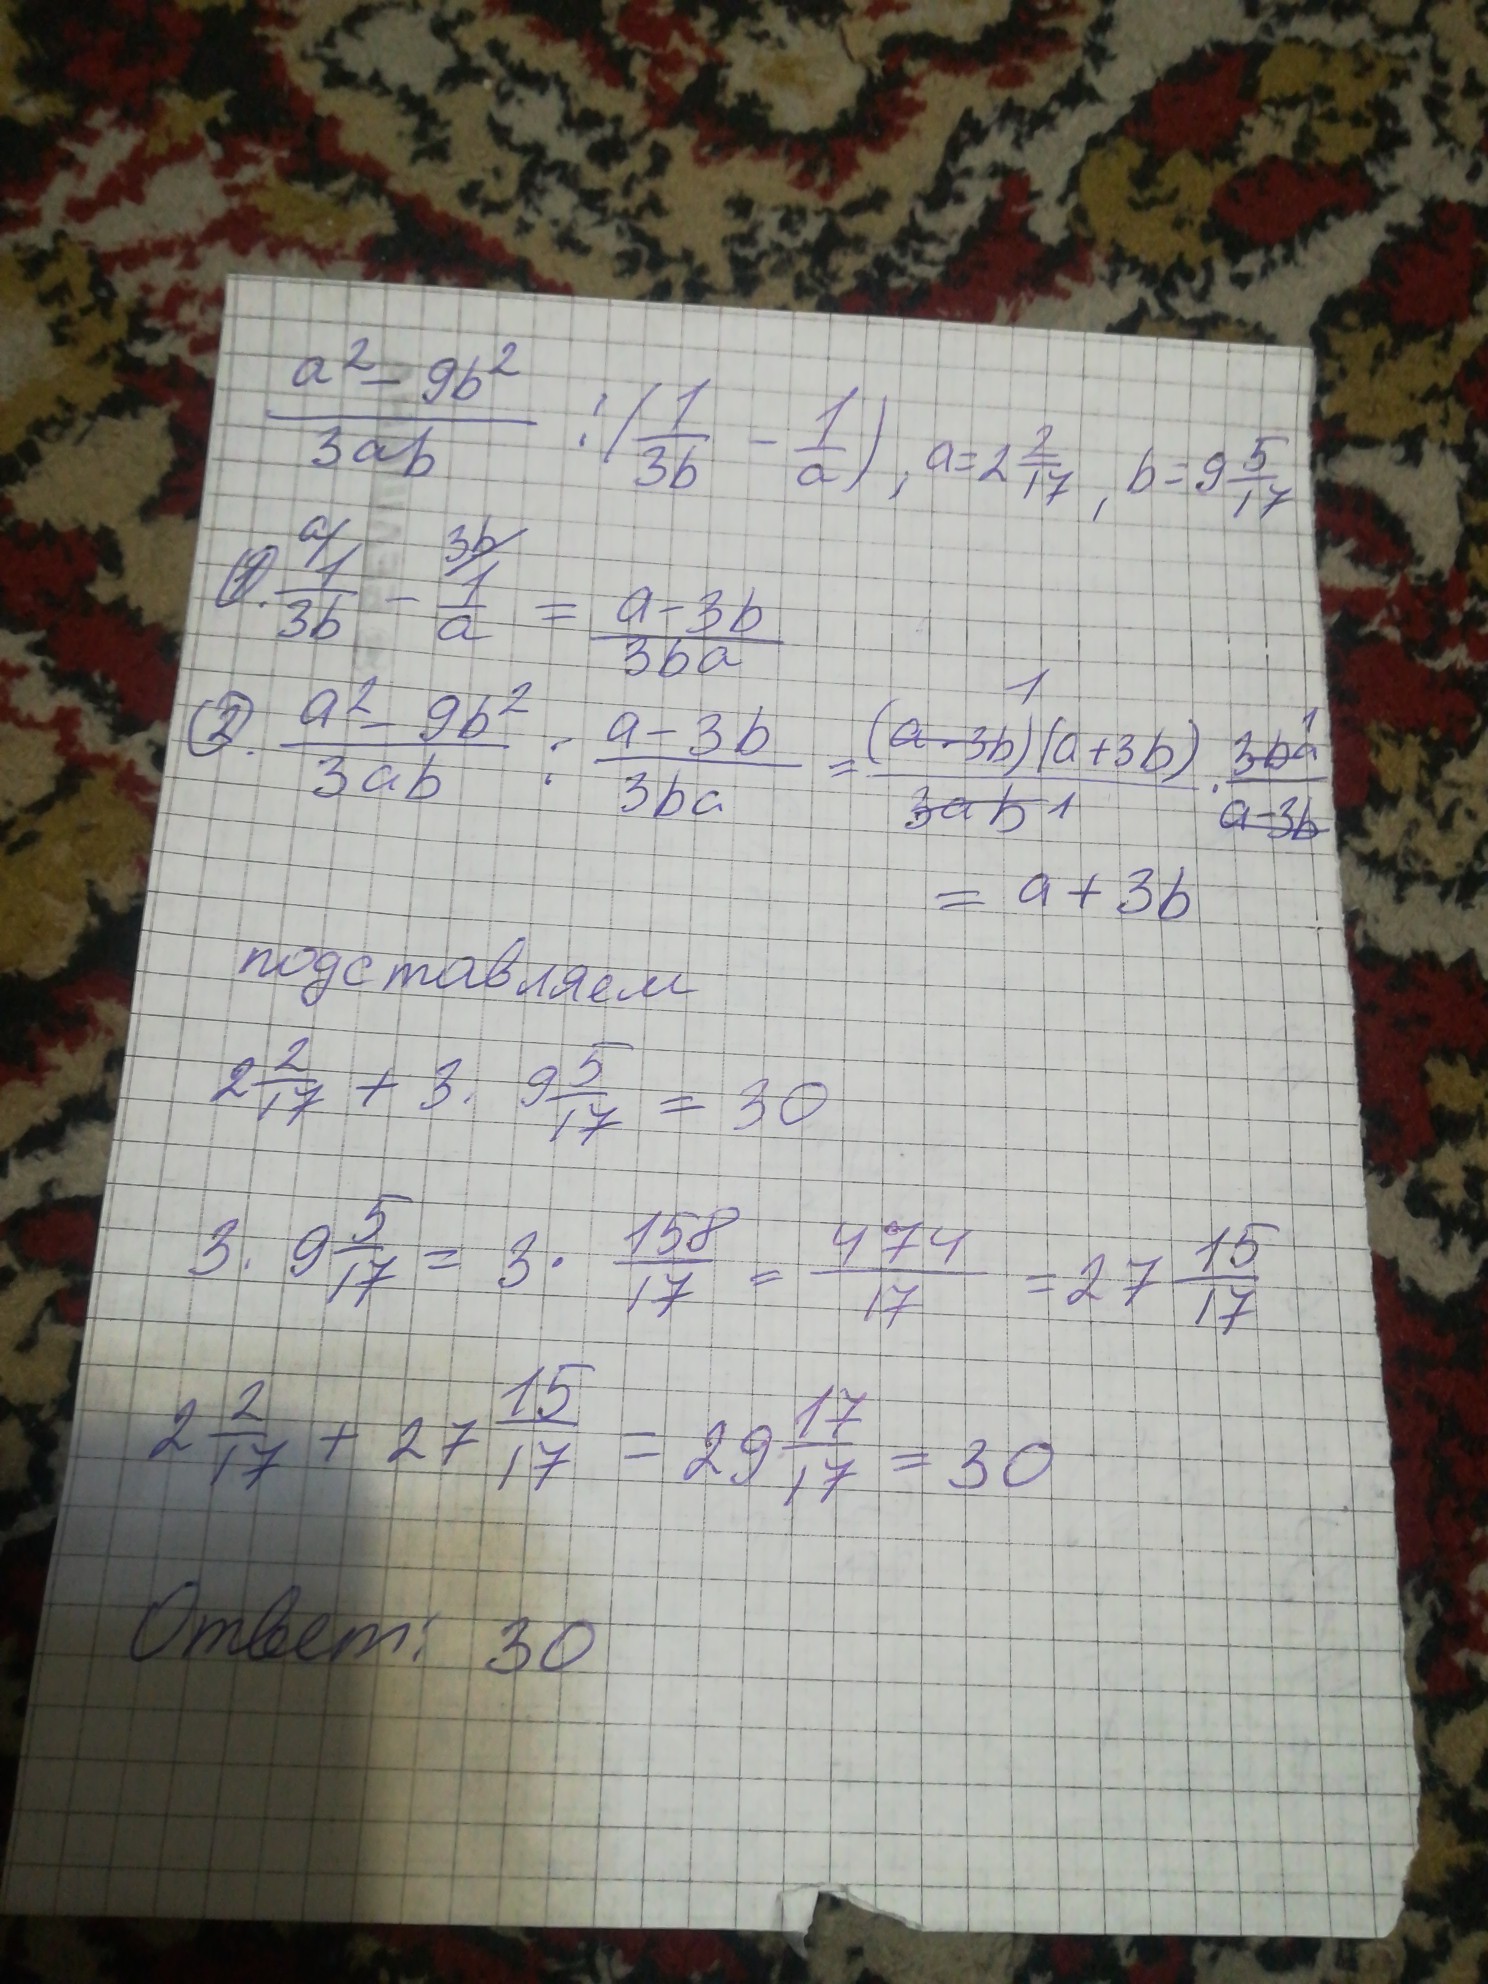 a² - 9b² / 3ab : (1/3b - 1/a), a = 2 2/17, b = 9 5/17
1. a/ 1/3b - 3b/ 1/a = a - 3b / 3ba
2. a² - 9b² / 3ab : a - 3b / 3ba = (a - 3b)(a + 3b) / 3ab · 3ba / a - 3b
= a + 3b
подставляем
2 2/17 + 3 · 9 5/17 = 30
3 · 9 5/17 = 3 · 158/17 = 474/17 = 27 15/17
2 2/17 + 27 15/17 = 29 17/17 = 30
Ответ: 30